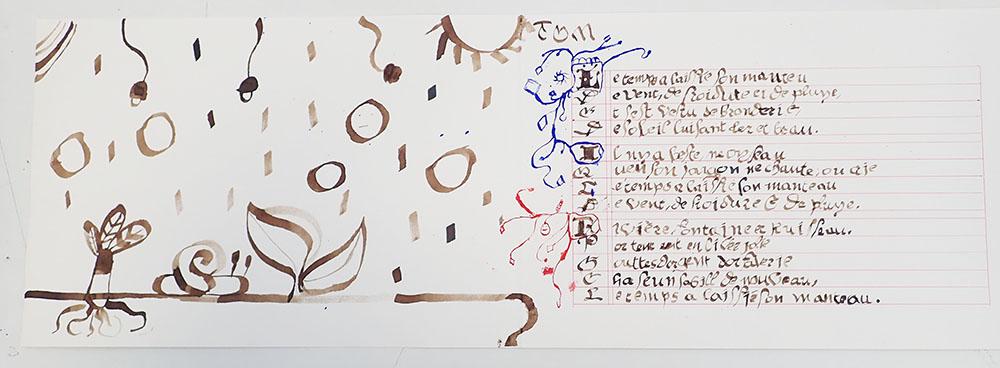 TOM
Le temps a laissié son manteu
De vent, de froidure et de pluye,
Et s'est vestu de brouderie
De soleil luisant cler et beau.
Il n'y a beste ne oyseau
Qu'en son jargon ne chante, ou crie
Le temps a laissié son manteau
De vent, de froidure & de pluye.
Rivière, fontaine et Ruisseau.
Portent en livrée jolie
Gouttes d'argent
Chascun s'abille de nouveau,
Le temps a laissié son manteau.